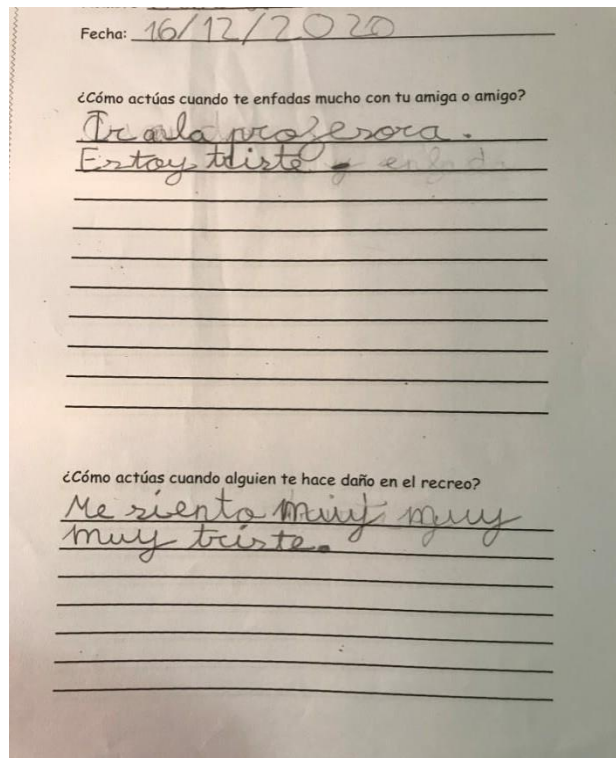 Fecha: 16/12/2020
¿Cómo actúas cuando te enfadas mucho con tu amiga o amigo?
Ir a la profesora.
Estoy triste
¿Cómo actúas cuando alguien te hace daño en el recreo?
Me siento muy muy
muy triste.